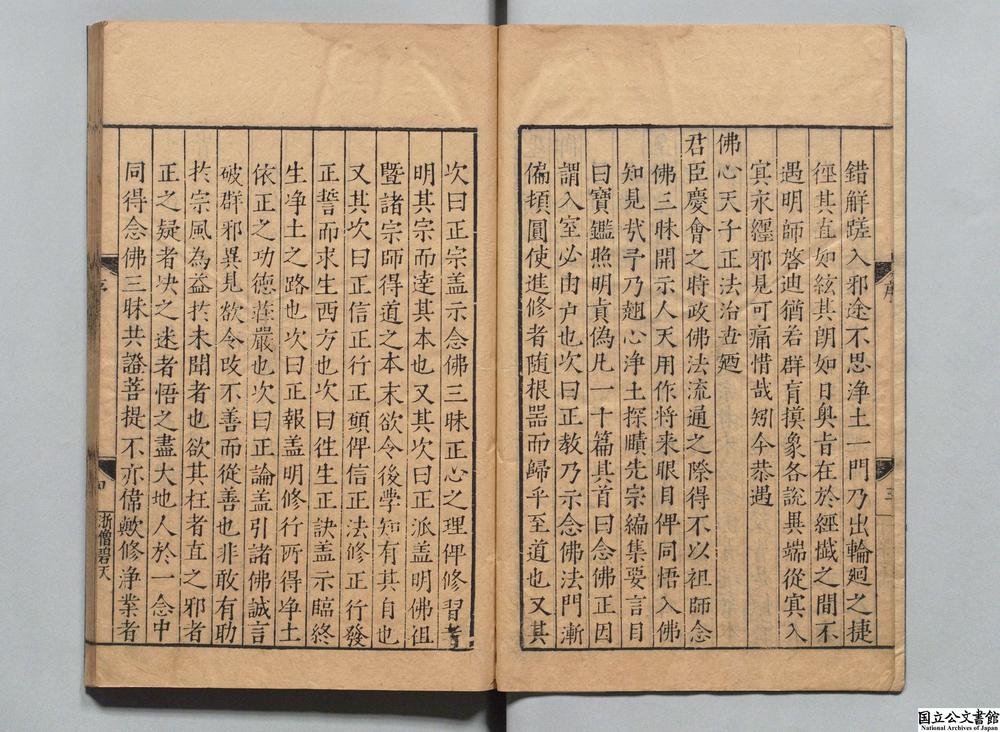 錯解蹉入邪途不思淨土一門乃出輪廻之捷
徑其直如絃其朗如日奥肯在於經懺之間不
遇明師啓迪猶若群肓摸象各說異端從冥入
冥永纏邪見可痛惜哉矧今恭遇
佛心天子正法治世廼
君臣慶會之時政佛法流通之際得不以祖師念
佛三昧開示人天用作將来眼目俾同悟入佛
知見㦲予乃趐心淨土探賾先宗編集要言目
曰寶鑑照明真偽凡一十篇其首曰念佛正因
謂入室必由户也次曰正教乃示念佛法門漸
偏頓圓使進修者随根器而歸乎至道也又其
序
三
次曰正宗盖示念佛三昧正心之理俾修習者
明其宗而達其本也又其次曰正派盖明佛祖
暨諸宗師得道之本末欲令後學知有其自也
又其次曰正信正行正願俾信正法修正行發
正誓而求生西方也次曰徃生正訣盖示臨終
生淨土之路也次曰正報盖明修行所得淨土
依正之功德莊嚴也次曰正論盖引諸佛誠言
破群邪異見欲令改不善而從善也非敢有助
扵宗風為益扵未聞者也欲其枉者直之邪者
正之疑者决之迷者悟之盡大地人於一念中
同得念佛三昧共證菩提不亦偉歟修淨業者
序
四
浙僧碧天
国立公文書館
National Archives of Japan